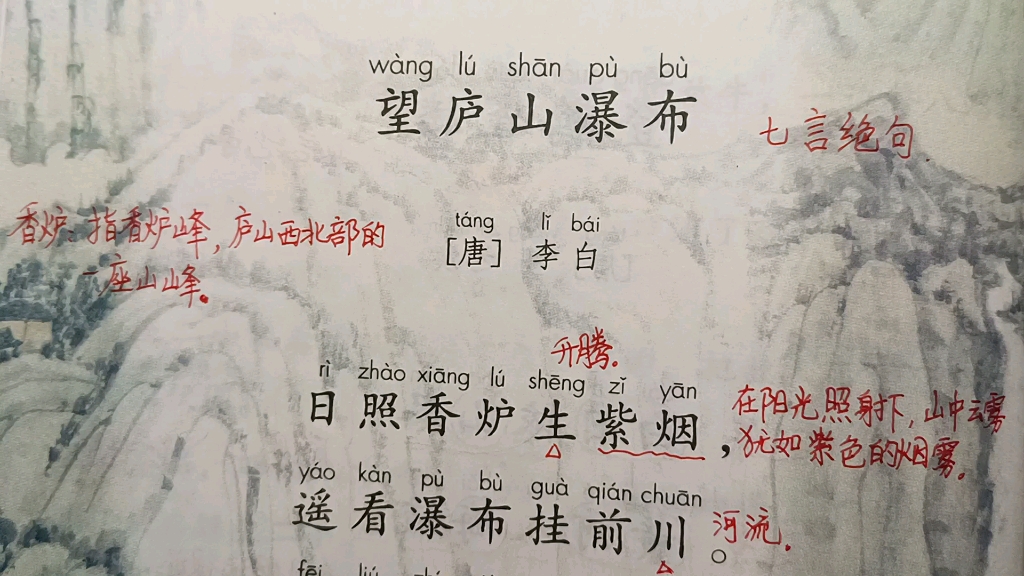 wàng lú shān pù bù
望庐山瀑布
七言绝句
香炉：指香炉峰，庐山西北部的
一座山峰。
táng lǐ bái
[唐] 李白
升腾。
rì zhào xiāng lú shēng zǐ yān
日照香炉生紫烟，
在阳光照射下，山中云雾
犹如紫色的烟雾。
yáo kàn pù bù guà qián chuān
遥看瀑布挂前川。
河流。
fēi liú